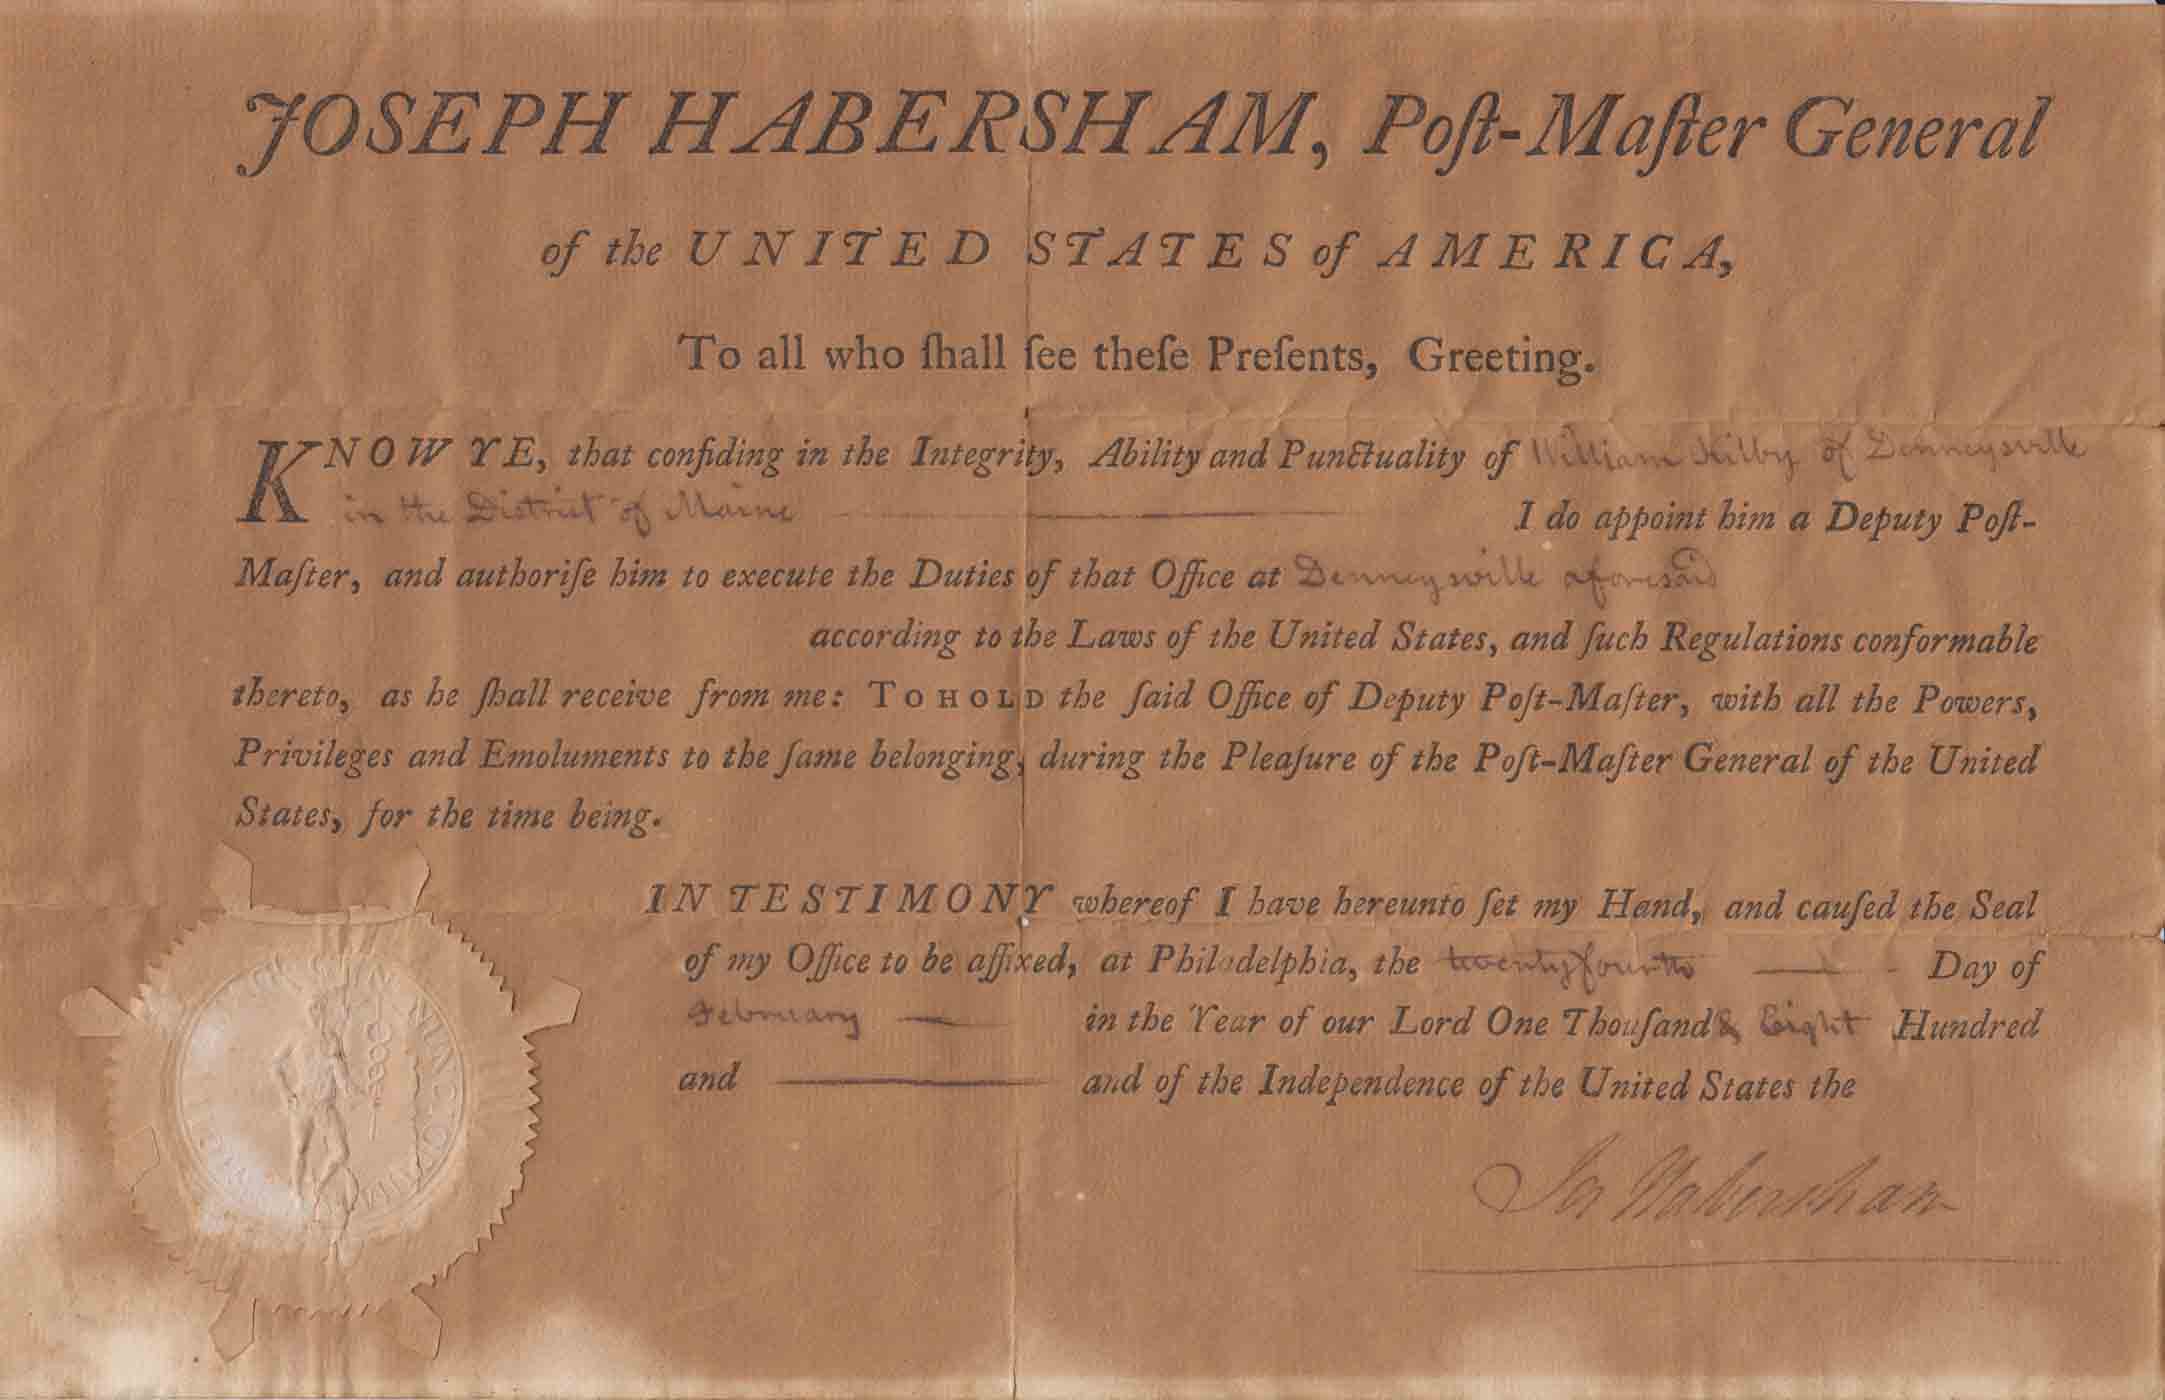 JOSEPH HABERSHAM, Poſt-Maſter General
of the UNITED STATES of AMERICA,
To all who ſhall ſee theſe Preſents, Greeting.
KNOW YE, that confiding in the Integrity, Ability and Punctuality of William Kilby of Denneysville
in the District of Maine I do appoint him a Deputy Poſt-
Maſter, and authoriſe him to execute the Duties of that Office at Denneysville aforesaid
according to the Laws of the United States, and ſuch Regulations conformable
thereto, as he ſhall receive from me: TO HOLD the ſaid Office of Deputy Poſt-Maſter, with all the Powers,
Privileges and Emoluments to the ſame belonging, during the Pleaſure of the Poſt-Maſter General of the United
States, for the time being.
IN TESTIMONY whereof I have hereunto ſet my Hand, and cauſed the Seal
of my Office to be affixed, at Philadelphia, the twenty fourth Day of
February in the Year of our Lord One Thouſand & Eight Hundred
and and of the Independence of the United States the
Jos Habersham